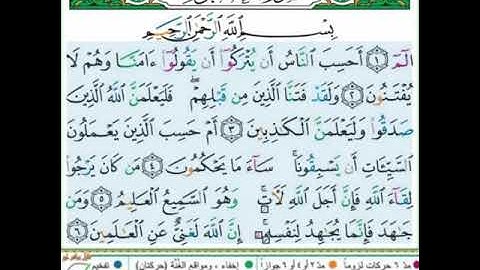 بِسْمِ ٱللَّهِ ٱلرَّحْمَٰنِ ٱلرَّحِيمِ
الٓمٓ ۝١ أَحَسِبَ ٱلنَّاسُ أَن يُتْرَكُوٓا۟ أَن يَقُولُوٓا۟ ءَامَنَّا وَهُمْ لَا
يُفْتَنُونَ ۝٢ وَلَقَدْ فَتَنَّا ٱلَّذِينَ مِن قَبْلِهِمْ ۖ فَلَيَعْلَمَنَّ ٱللَّهُ ٱلَّذِينَ
صَدَقُوا۟ وَلَيَعْلَمَنَّ ٱلْكَٰذِبِينَ ۝٣ أَمْ حَسِبَ ٱلَّذِينَ يَعْمَلُونَ
ٱلسَّيِّـَٔاتِ أَن يَسْبِقُونَا ۚ سَآءَ مَا يَحْكُمُونَ ۝٤ مَن كَانَ يَرْجُوا۟
لِقَآءَ ٱللَّهِ فَإِنَّ أَجَلَ ٱللَّهِ لَـَٔاتٍ ۚ وَهُوَ ٱلسَّمِيعُ ٱلْعَلِيمُ ۝٥ وَمَن
جَٰهَدَ فَإِنَّمَا يُجَٰهِدُ لِنَفْسِهِۦٓ ۚ إِنَّ ٱللَّهَ لَغَنِىٌّ عَنِ ٱلْعَٰلَمِينَ ۝٦
مدّ ٦ حركات لزوماً مدّ ٢ أو ٤ أو ٦ جوازاً إخفاء، ومواقع الغُنَّة (حركتان) تفخيم